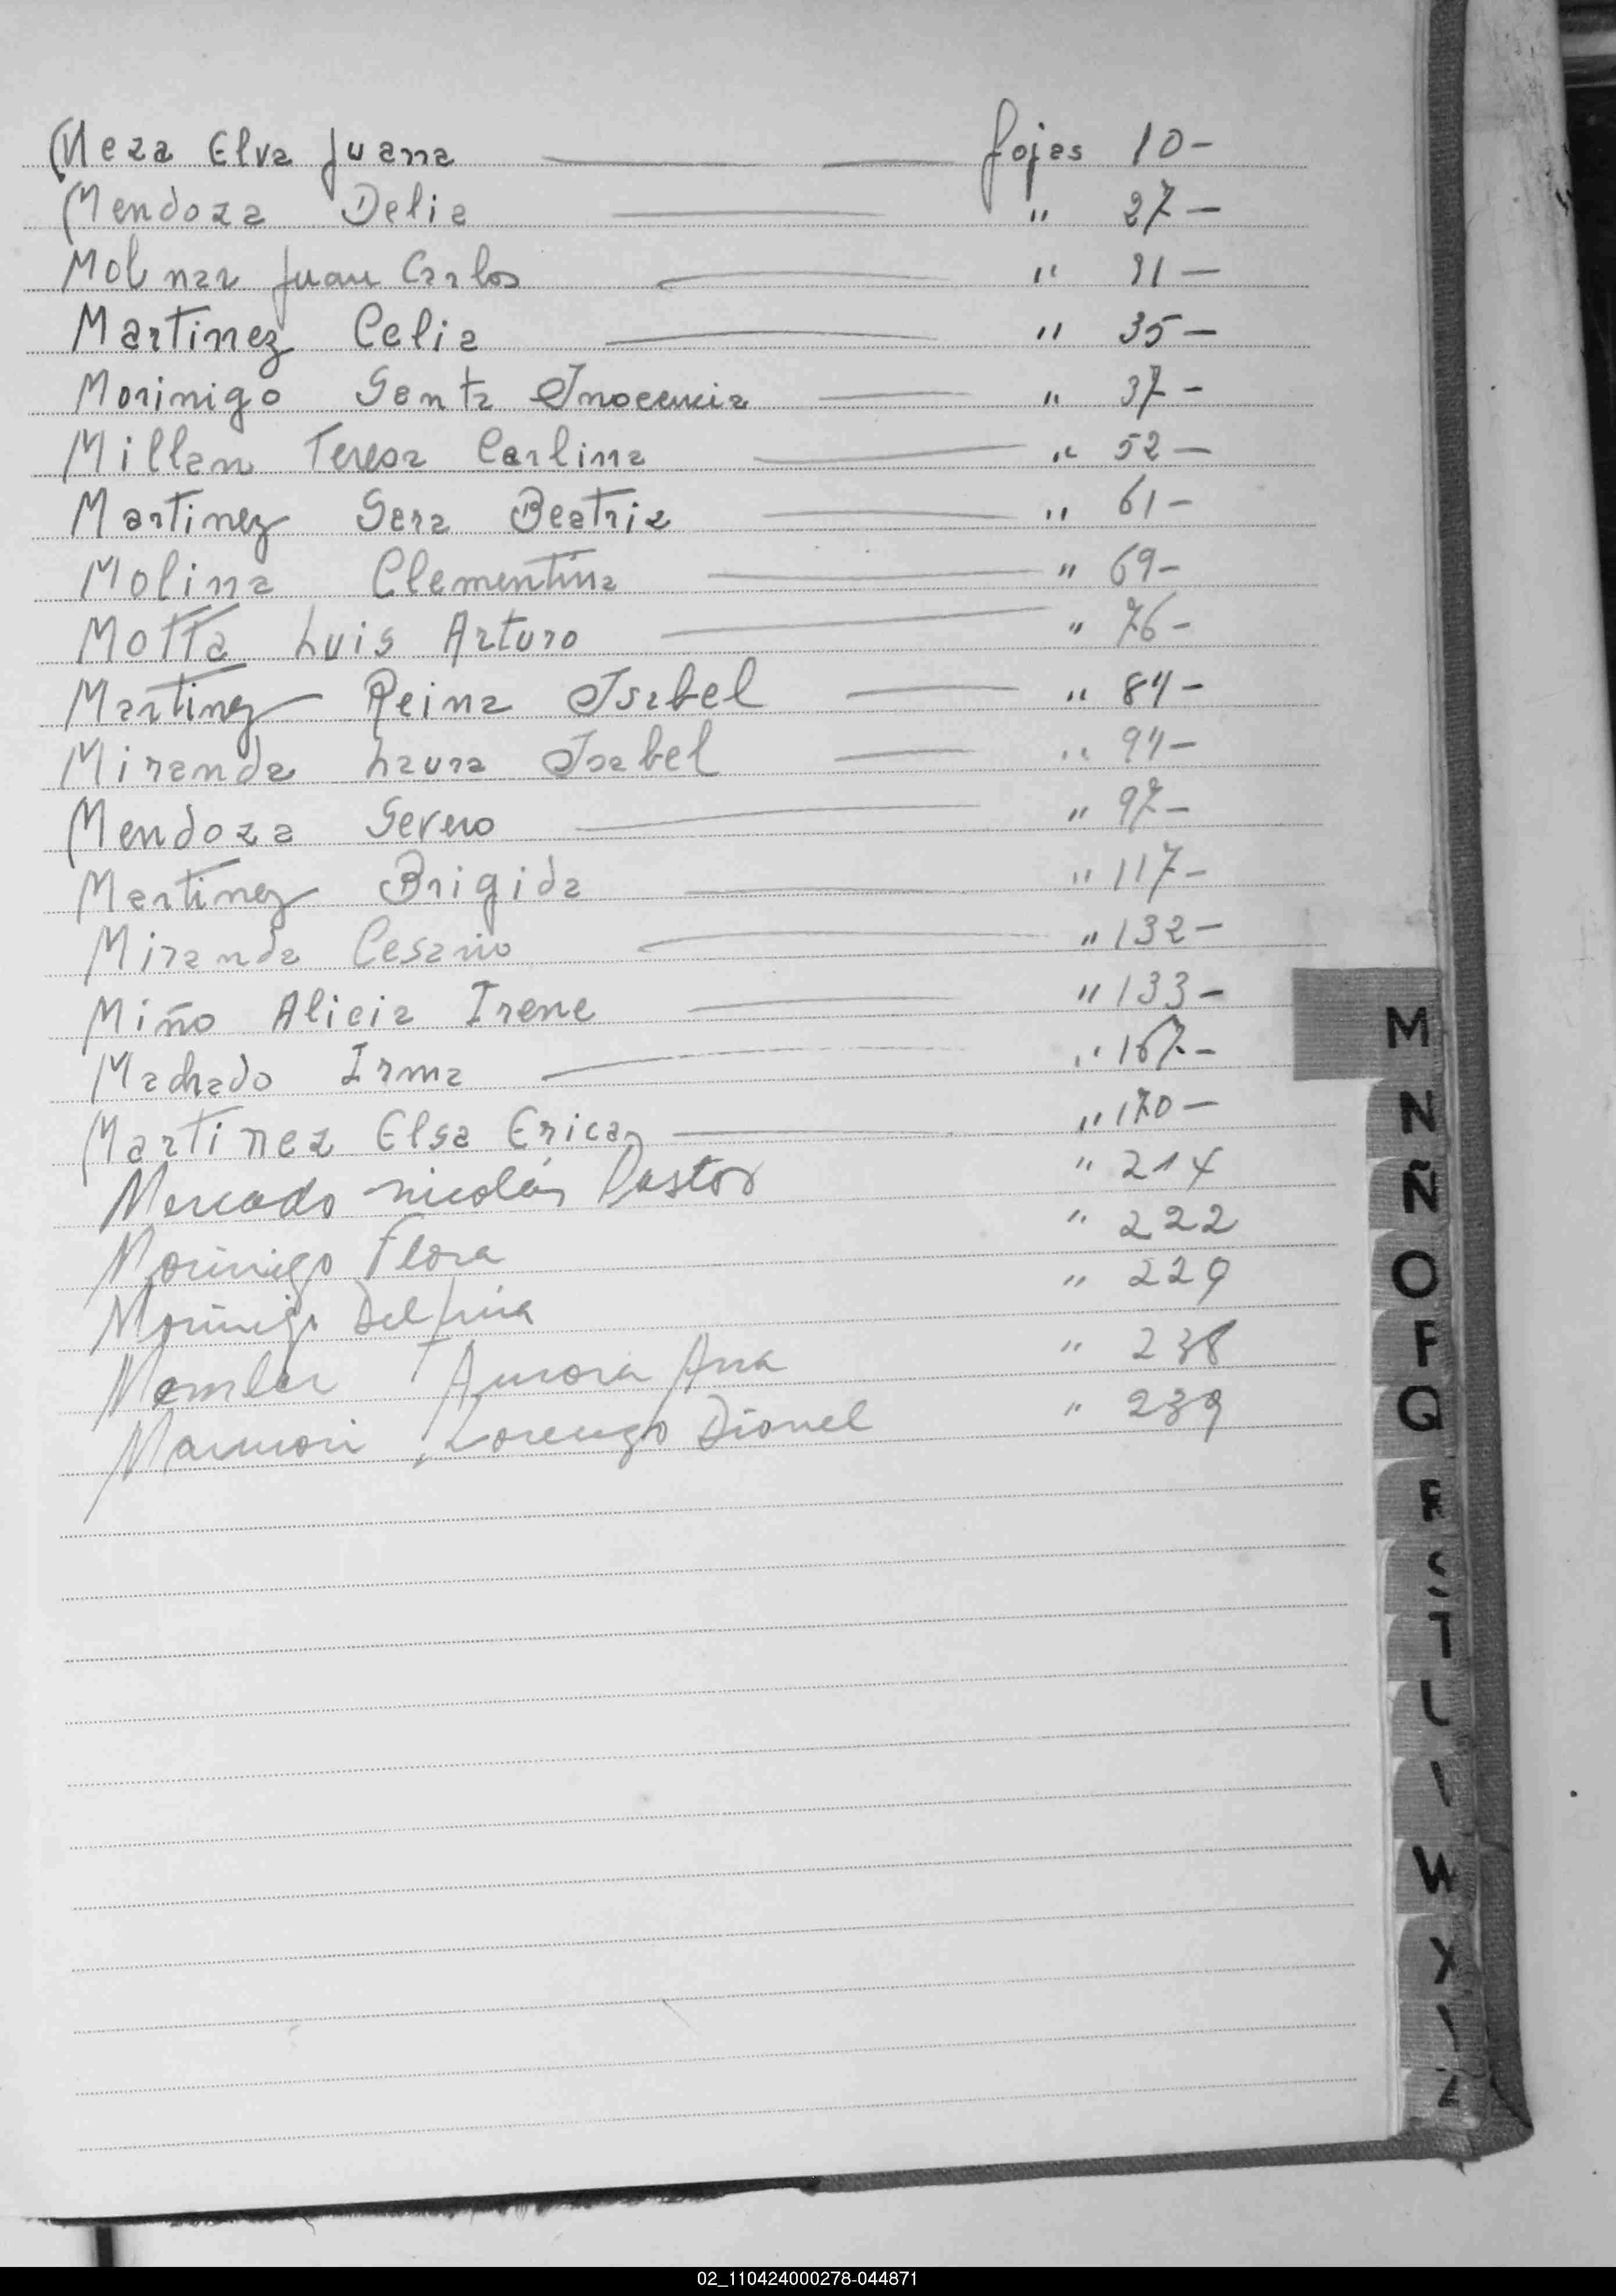 Meza Elva Juana fojas 10-
Mendoza Delia " 27-
Molinar Juan Carlos " 31-
Martinez Celia " 35-
Morinigo Santa Inocencia " 37-
Millan Teresa Carlina " 52-
Martinez Sara Beatriz " 61-
Molina Clementina " 69-
Motta Luis Arturo " 76-
Martinez Reina Isabel " 84-
Miranda Laura Isabel " 94-
Mendoza Severo " 97-
Martinez Brigida " 117-
Miranda Cesario " 132-
Miño Alicia Irene " 133-
Machado Irma " 167-
Martinez Elsa Erica " 170-
Mercado Nicolás Pastor " 214
Morinigo Flora " 222
Morinigo Delfina " 229
Aurora Ana " 238
Lorenzo Dionel " 239
M
N
Ñ
O
P
Q
R
S
T
W
X
Z
02_110424000278-044871